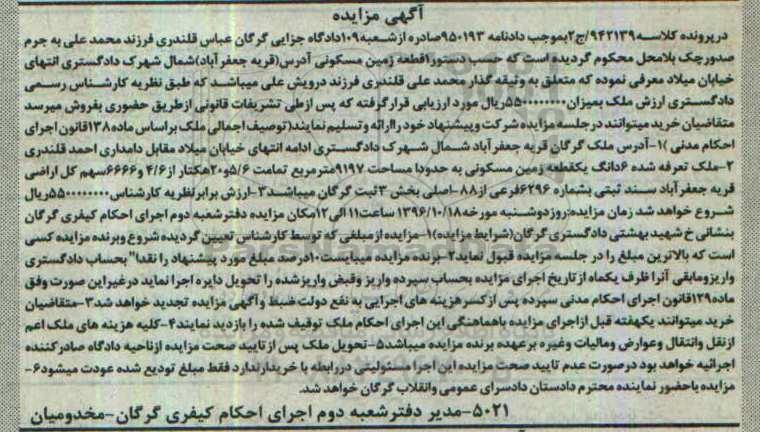 آگهی مزایده
درپرونده کلاسه ۹۴۲۱۳۹/ج۲بموجب دادنامه ۹۵۰۱۹۳صادره ازشعبه۱۰۹دادگاه جزایی گرگان عباس قلندری فرزند محمد علی به جرم
صدورچک بلامحل محکوم گردیده است که حسب دستور۱قطعه زمین مسکونی آدرس(قریه جعفرآباد)شمال شهرک دادگستری انتهای
خیابان میلاد معرفی نموده که متعلق به وثیقه گذار محمد علی قلندری فرزند درویش علی میباشد که طبق نظریه کارشناس رسمی
دادگستری ارزش ملک بمیزان ریال مورد ارزیابی قرارگرفته که پس ازطی تشریفات قانونی ازطریق حضوری بفروش میرسد
متقاضیان خرید میتوانند درجلسه مزایده شرکت وپیشنهاد خود راارائه وتسلیم نمایند(توصیف اجمالی ملک براساس ماده۱۳۸قانون اجرای
احکام مدنی )۱-آدرس ملک گرگان قریه جعفرآباد شمال شهرک دادگستری ادامه انتهای خیابان میلاد مقابل دامداری احمد قلندری
۲-ملک تعرفه شده ۶دانگ یکقطعه زمین مسکونی به حدودا مساحت ۹۱۹۷مترمربع تمامت ۵/۶و۲۰هکتار از۴/۶و۶۶۶۶سهم کل اراضی
قریه جعفرآباد سند ثبتی بشماره ۶۲۹۶فرعی از۸۸-اصلی بخش ۳ثبت گرگان میباشد۳-ارزش برابرنظریه کارشناس ریال
شروع خواهد شد زمان مزایده:روزدوشنبه مورخه۱۳۹۶/۱۰/۱۸ ساعت۱۱الی۱۲مکان مزایده دفترشعبه دوم اجرای احکام کیفری گرگان
بنشانی خ شهید بهشتی دادگستری گرگان(شرایط مزایده)۱-مزایده ازمبلغی که توسط کارشناس تعیین گردیده شروع وبرنده مزایده کسی
است که بالاترین مبلغ را در جلسه مزایده قبول نماید۲-برنده مزایده میبایست۱۰درصد مبلغ مورد پیشنهاد را نقدا" بحساب دادگستری
واریزومابقی آنرا ظرف یکماه ازتاریخ اجرای مزایده بحساب سپرده واریز وقبض واریزشده را تحویل دایره اجرا نماید درغیراین صورت وفق
ماده۱۲۹قانون اجرای احکام مدنی سپرده پس ازکسرهزینه های اجرایی به نفع دولت ضبط وآگهی مزایده تجدید خواهد شد۳-متقاضیان
خرید میتوانند یکهفته قبل ازاجرای مزایده باهماهنگی این اجرای احکام ملک توقیف شده را بازدید نمایند۴-کلیه هزینه های ملک اعم
ازنقل وانتقال وعوارض ومالیات وغیره برعهده برنده مزایده میباشد۵-تحویل ملک پس ازتایید صحت مزایده ازناحیه دادگاه صادرکننده
اجرائیه خواهد بود درصورت عدم تایید صحت مزایده این اجرا مسئولیتی دررابطه با خریدارندارد فقط مبلغ تودیع شده عودت میشود۶-
مزایده باحضور نماینده محترم دادستان دادسرای عمومی وانقلاب گرگان خواهد شد.
۵۰۲۱-مدیر دفترشعبه دوم اجرای احکام کیفری گرگان-مخدومیان